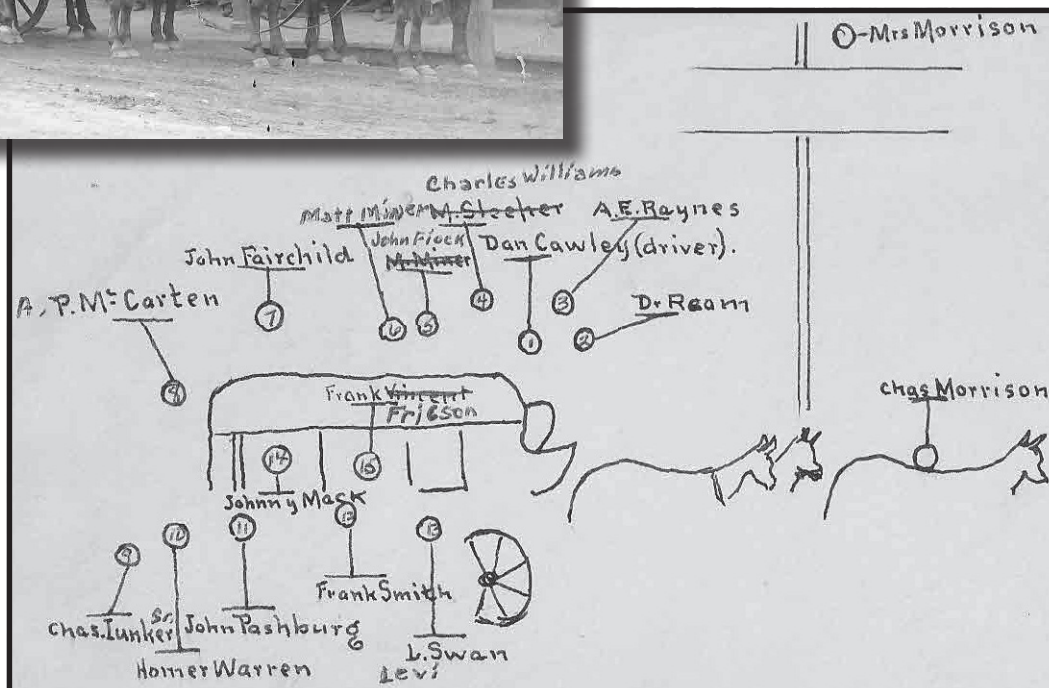 O-Mrs Morrison
Charles Williams
Matt Miner M. Sleeher A.E. Raynes
John Fiock Dan Cawley (driver).
M. Miner
John Fairchild
A. P. Mc Carten
7 6 5 4 1 3 2 Dr Ream
8
Frank Vincent
Fricson
chas Morrison
14 15
Johnny Mack
9 10 11 12 13
Frank Smith
Chas. Iunker Sr. John Pashburg
Homer Warren
L. Swan
Levi